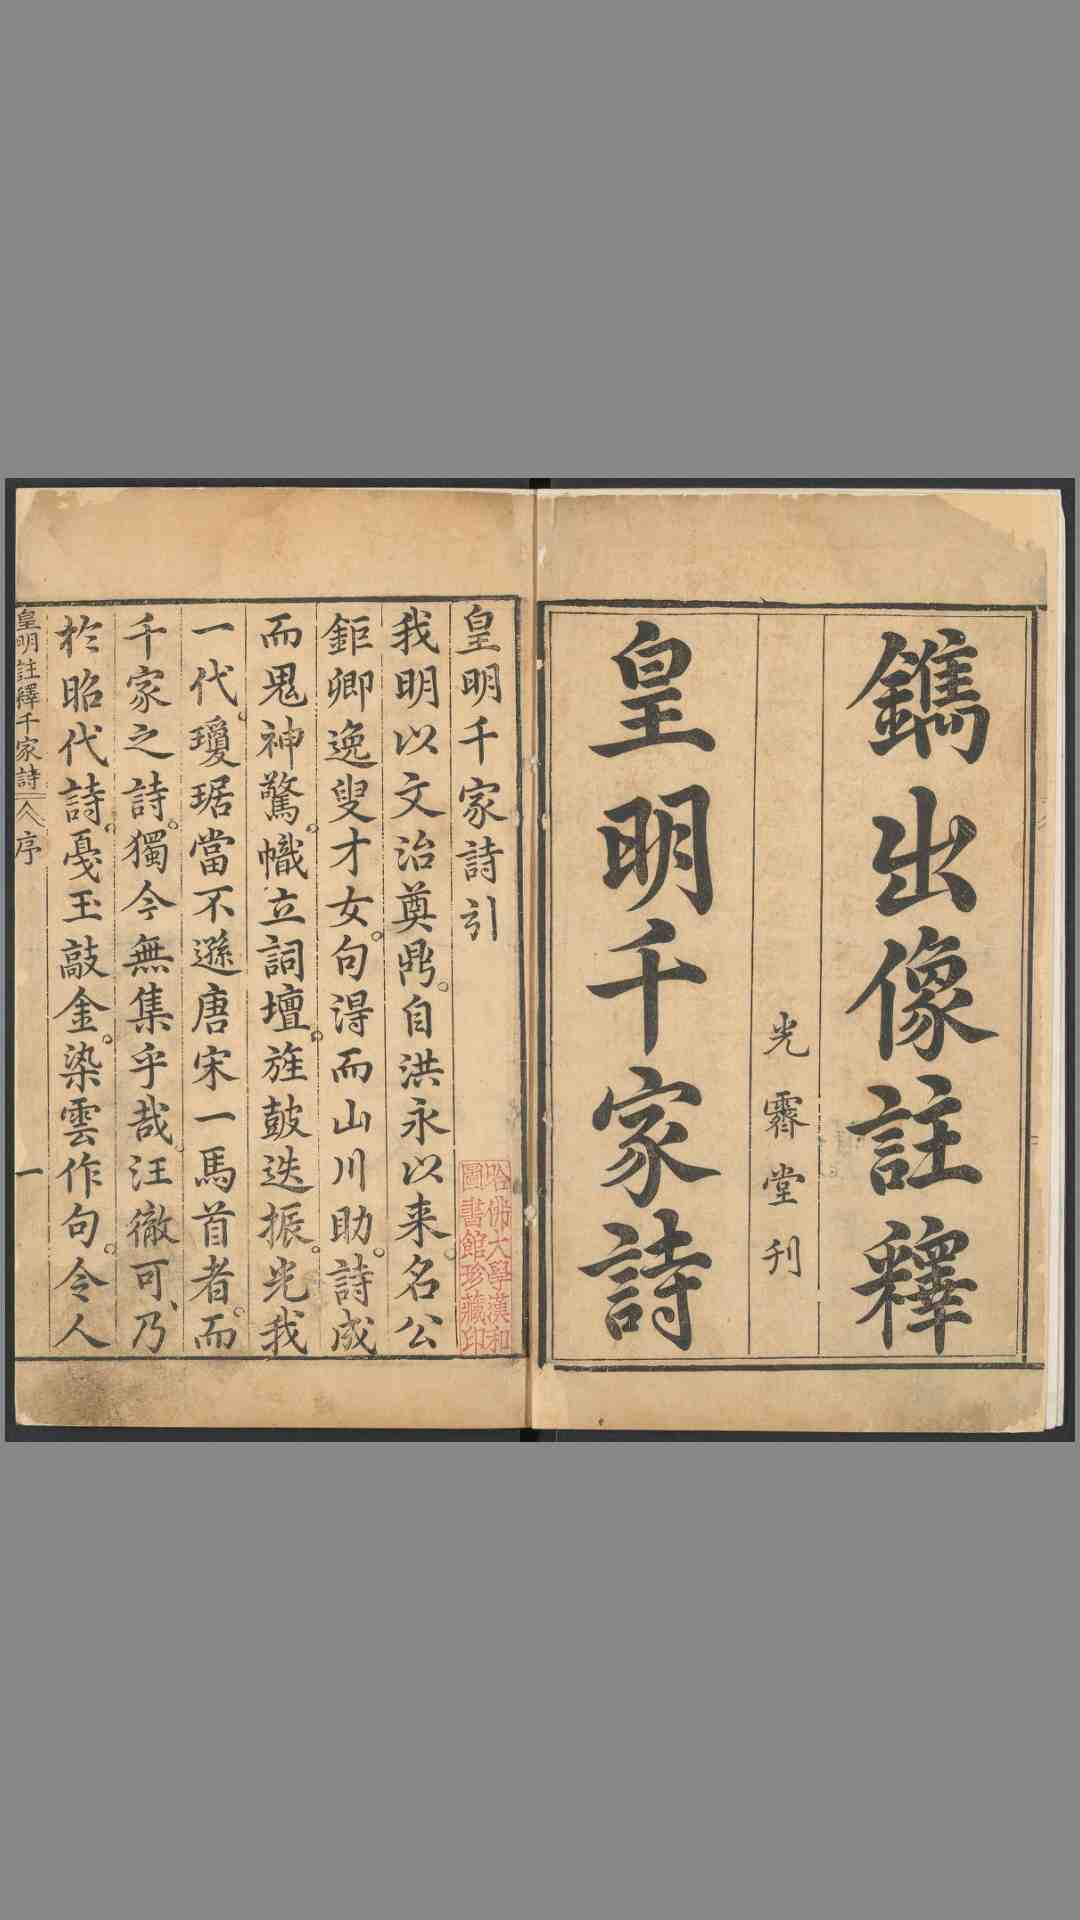 鐫出像註釋
光霽堂刊
皇明千家詩
皇明千家詩引
我明以文治奠鼎。自洪永以来名公
鉅卿逸叟才女。句得而山川助。詩成
而鬼神驚。幟立詞壇。旌鼓迭振。光我
一代。瓊琚當不遜唐宋一馬首者。而
千家之詩。獨今無集乎哉。汪徹可、乃
於昭代詩。戛玉敲金。染雲作句。令人
哈佛大學漢和
圖書館珍藏印
皇明註釋千家詩
序
一